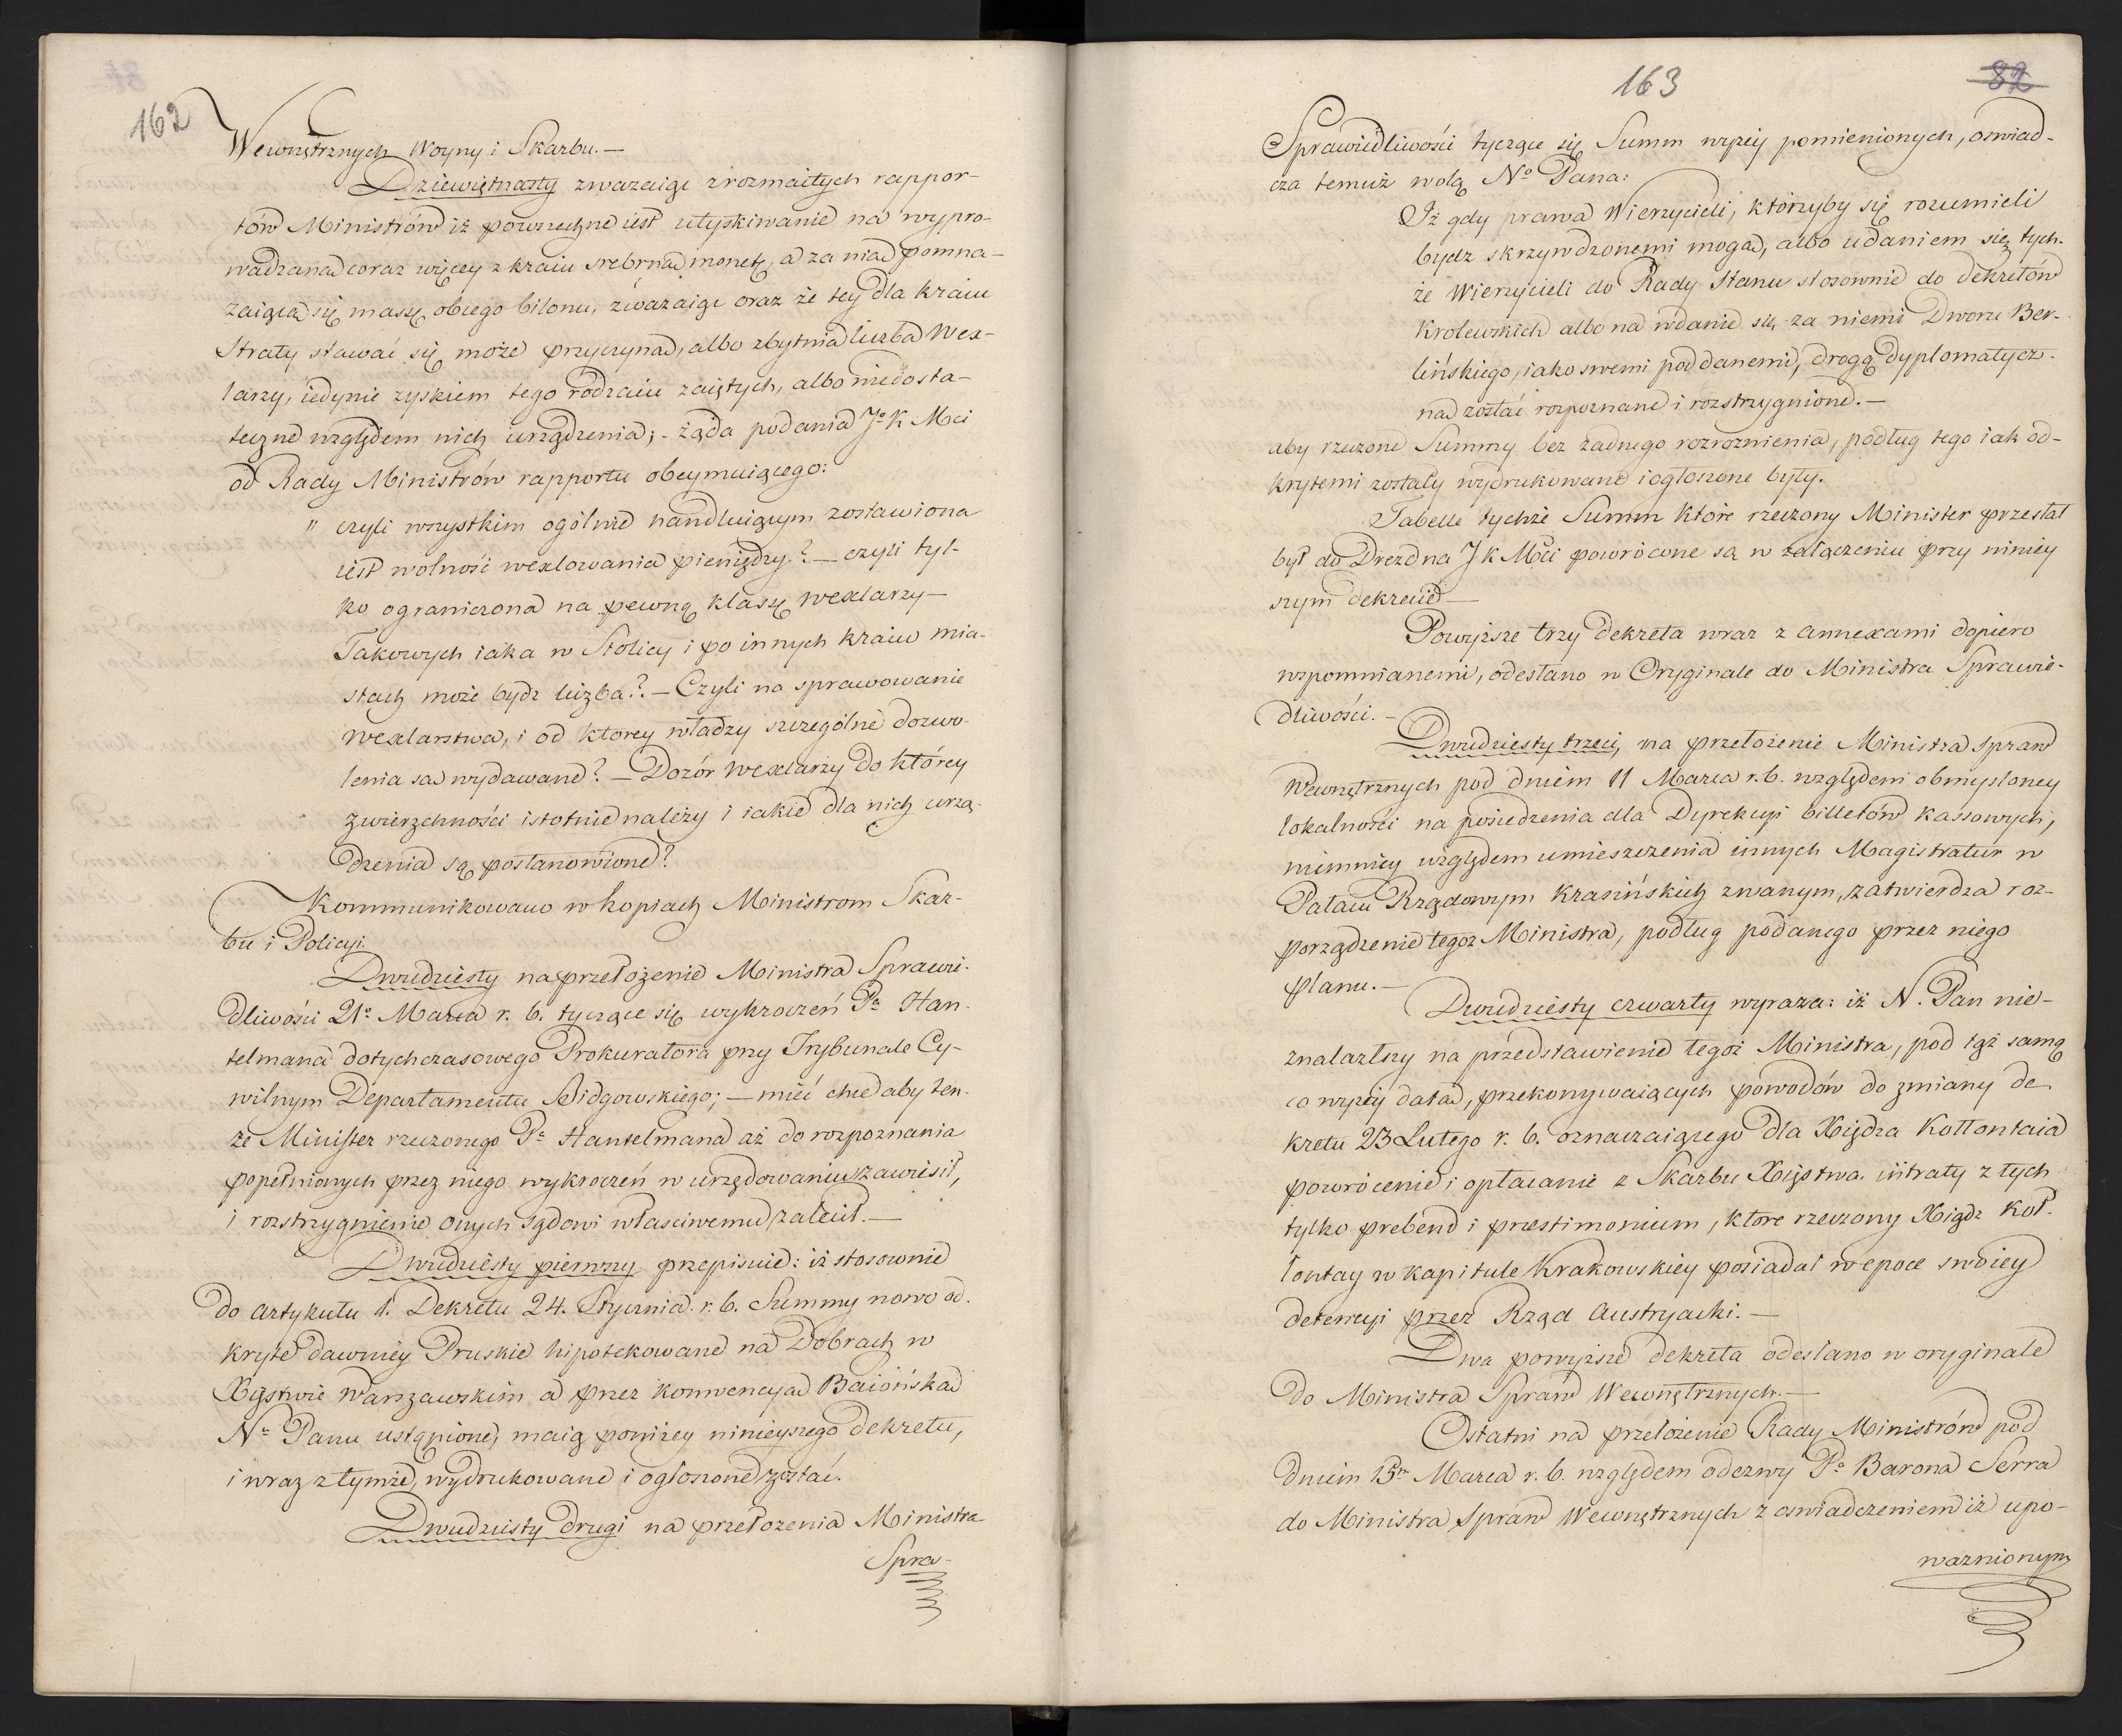 162
Wewnętrznych Woyny i Skarbu.—
Dziewiętnasty zwazaiąc z rozmaitych rappor-
tów Ministrów iż powszechne iest utyskiwanie na wypro-
wadzaną coraz więcey z kraiu srebrną monetę, a za nią pomna-
zaiącą się massę obcego bilonu, zwazaiąc oraz że tey dla kraiu
Straty stawać się może przyczyną, albo zbytnia liczba Wex-
larzy, iedynie zyskiem tego rodzaiu zaiętych, albo niedosta-
teczne względem nich urządzenia; - żąda podania Jº K Mci
od Rady Ministrów rapportu obeymuiącego:
" czyli wszystkim ogólnie handluiącym zostawiona
iest wolność wexlowania pieniędzy? — czyli tyl-
ko ograniczona na pewną klassę wexlarzy —
Takowych iaka w Stolicy i po innych kraiu mia-
stach może bydz liczba?. — Czyli na sprawowanie
wexlarstwa, i od ktorey władzy szczególne dozwo-
lenia są wydawane? — Dozór Wexlarzy do którey
zwierzchności istotnie należy i iakie dla nich urzą-
dzenia są postanowione?
Kommunikowano w kopiach Ministrom Skar-
bu i Policyi.
Dwudziesty na przełożenie Ministra Sprawie-
dliwości 21º Marca r. b. tyczące się wykroczeń Pª Han-
telmana dotychczasowego Prokuratora przy Trybunale Cy-
wilnym Departamentu Bidgowskiego; — mieć chce aby ten-
że Minister rzeczonego Pª Hantelmana aż do rozpoznania
popełnionych przez niego wykroczeń w urzędowaniu zawiesił,
i rozstrzygnienie onych Sądowi właściwemu zalecił. —
Dwudziesty pierwszy przepisuie: iż stosownie
do Artykułu 1. Dekretu 24. Stycznia r. b. Summy nowo od-
kryte dawniey Pruskie hipotekowane na Dobrach w
Xięstwie Warszawskim a przez konwencyą Baiońską
Nº Panu ustąpione, maią poniżey ninieyszego dekretu,
i wraz z tymże, wydrukowane i ogłoszone zostać.
Dwudziesty drugi na przełożenia Ministra
Spra-
163
82
Sprawiedliwości tyczące się Summ wyżey pomienionych, oswiad-
cza temuż wolą Nº Pana:
Iż gdy prawa Wierzycieli, którzyby się rozumieli
bydz skrzywdzonemi mogą, albo udaniem się tych-
że Wierzycieli do Rady Stanu stosownie do dekretów
Krolewskich albo na wdanie się za niemi Dworu Ber-
lińskiego, iako swemi poddanemi, drogą dyplomatycz-
ną zostać rozpoznane i rozstrzygnione. —
aby rzeczone Summy bez żadnego rozroznienia, podług tego iak od-
krytemi zostały wydrukowane i ogłoszone były.
Tabelle tychże Summ które rzeczony Minister przesłał
był do Drezdna J K Mci powrócone są w załączeniu przy niniey
szym dekrecie —
Powyższe trzy dekreta wraz z annexami dopiero
wspomnianemi, odesłano w Oryginale do Ministra Sprawie-
dliwości. —
Dwudziesty trzeci, na przełożenie Ministra Spraw
Wewnętrznych pod dniem 11 Marca r. b. względem obmysloney
lokalności na posiedzenia dla Dyrekcyi billetów kassowych,
niemniey względem umieszczenia innych Magistratur w
Pałacu Rządowym Krasińskich zwanym, zatwierdza roz-
porządzenie tegoz Ministra, podług podanego przez niego
planu. —
Dwudziesty czwarty wyraza: iż N. Pan nie-
znalazłszy na przedstawienie tegoż Ministra, pod tąż samą
co wyżey datą, przekonywaiących powodów do zmiany de-
kretu 23 Lutego r. b. oznaczaiącego dla Xiędza Kołłontaia
powrócenie i opłacanie z Skarbu Xięstwa intraty z tych
tylko prebend i præstimonium, które rzeczony Xiądz Koł-
łontay w Kapitule Krakowskiey posiadał w epoce swoiey
detencyi przez Rząd Austryacki. —
Dwa powyższe dekreta odesłano w oryginale
do Ministra Spraw Wewnętrznych. —
Ostatni na przełożenie Rady Ministrów pod
dniem 15m Marca r. b. względem odezwy Pª Barona Serra
do Ministra Spraw Wewnętrznych z oswiadczeniem iż upo-
waznionym